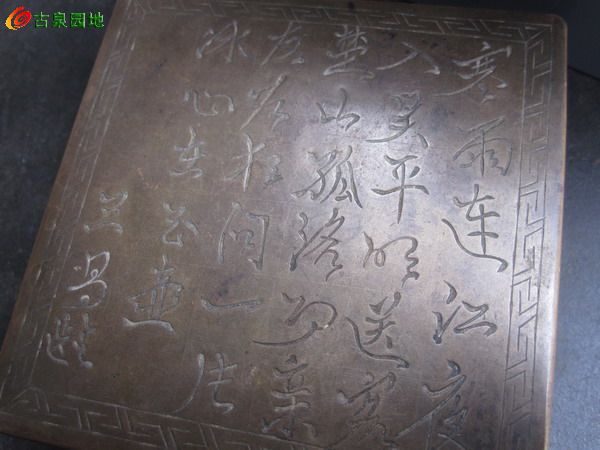 古泉园地
寒雨连江夜
入吴平明送客
楚山孤洛阳亲
友如相问一片
冰心在玉壶
王昌龄